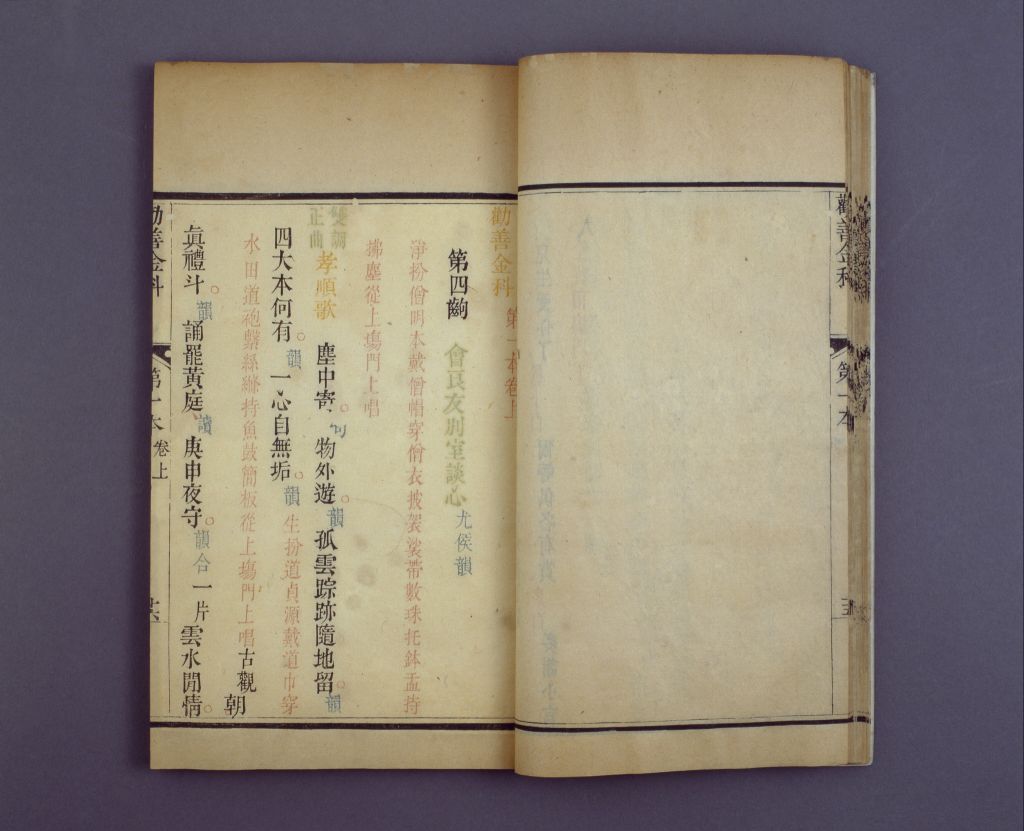 勸善金科
第一本
勸善金科 第一本卷上
第四齣 會良友別室談心 尤侯韻
淨扮僧明本戴僧帽穿僧衣披袈裟帶數珠托鉢盂持
拂塵從上塲門上唱
雙調正曲 孝順歌 塵中寄 句 物外遊 韻 孤雲踪跡隨地留 韻
四大本何有 韻 一心自無垢 韻 生扮道貞源戴道巾穿
水田道袍繫絲縧持魚鼓簡板從上塲門上唱 古觀朝
眞禮斗 韻 誦罷黃庭 讀 庚申夜守 韻 合 一片雲水閒情
勸善金科 第一本 卷上